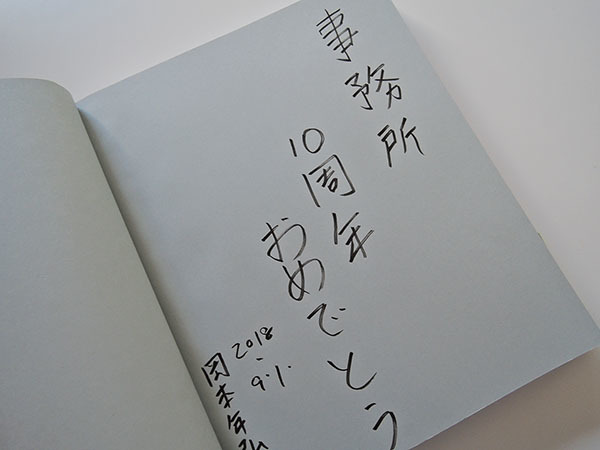 事務所
10周年
おめでとう
2018.9.1.
岡本年弘